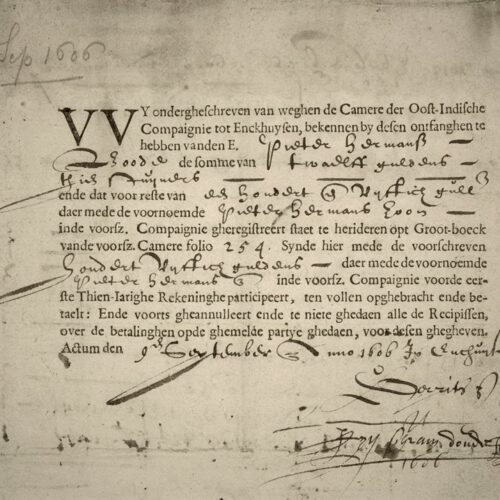 Sep 1606
VVY ondergheschreven van weghen de Camere der Oost-Indische
Compaignie tot Enckhuysen, bekennen by desen ontfanghen te
hebben vanden E. Pieter Hermansz
de somme van twaelff guldens
ende dat voor reste van een hondert vyftich gull
daer mede de voornoemde Pieter Hermans
inde voorsz. Compaignie gheregistreert staet te herideren opt Groot-boeck
vande voorsz. Camere folio 254. Synde hier mede de voorschreven
hondert vyftich guldens daer mede de voornoemde
Pieter Hermans inde voorsz. Compaignie voorde eer-
ste Thien-Iarighe Rekeninghe participeert, ten vollen opghebracht ende be-
taelt: Ende voorts gheannulleert ende te niete ghedaen alle de Recipissen,
over de betalinghen opde ghemelde partye ghedaen, voor desen ghegheven.
Actum den 9 September Anno 1606
1606